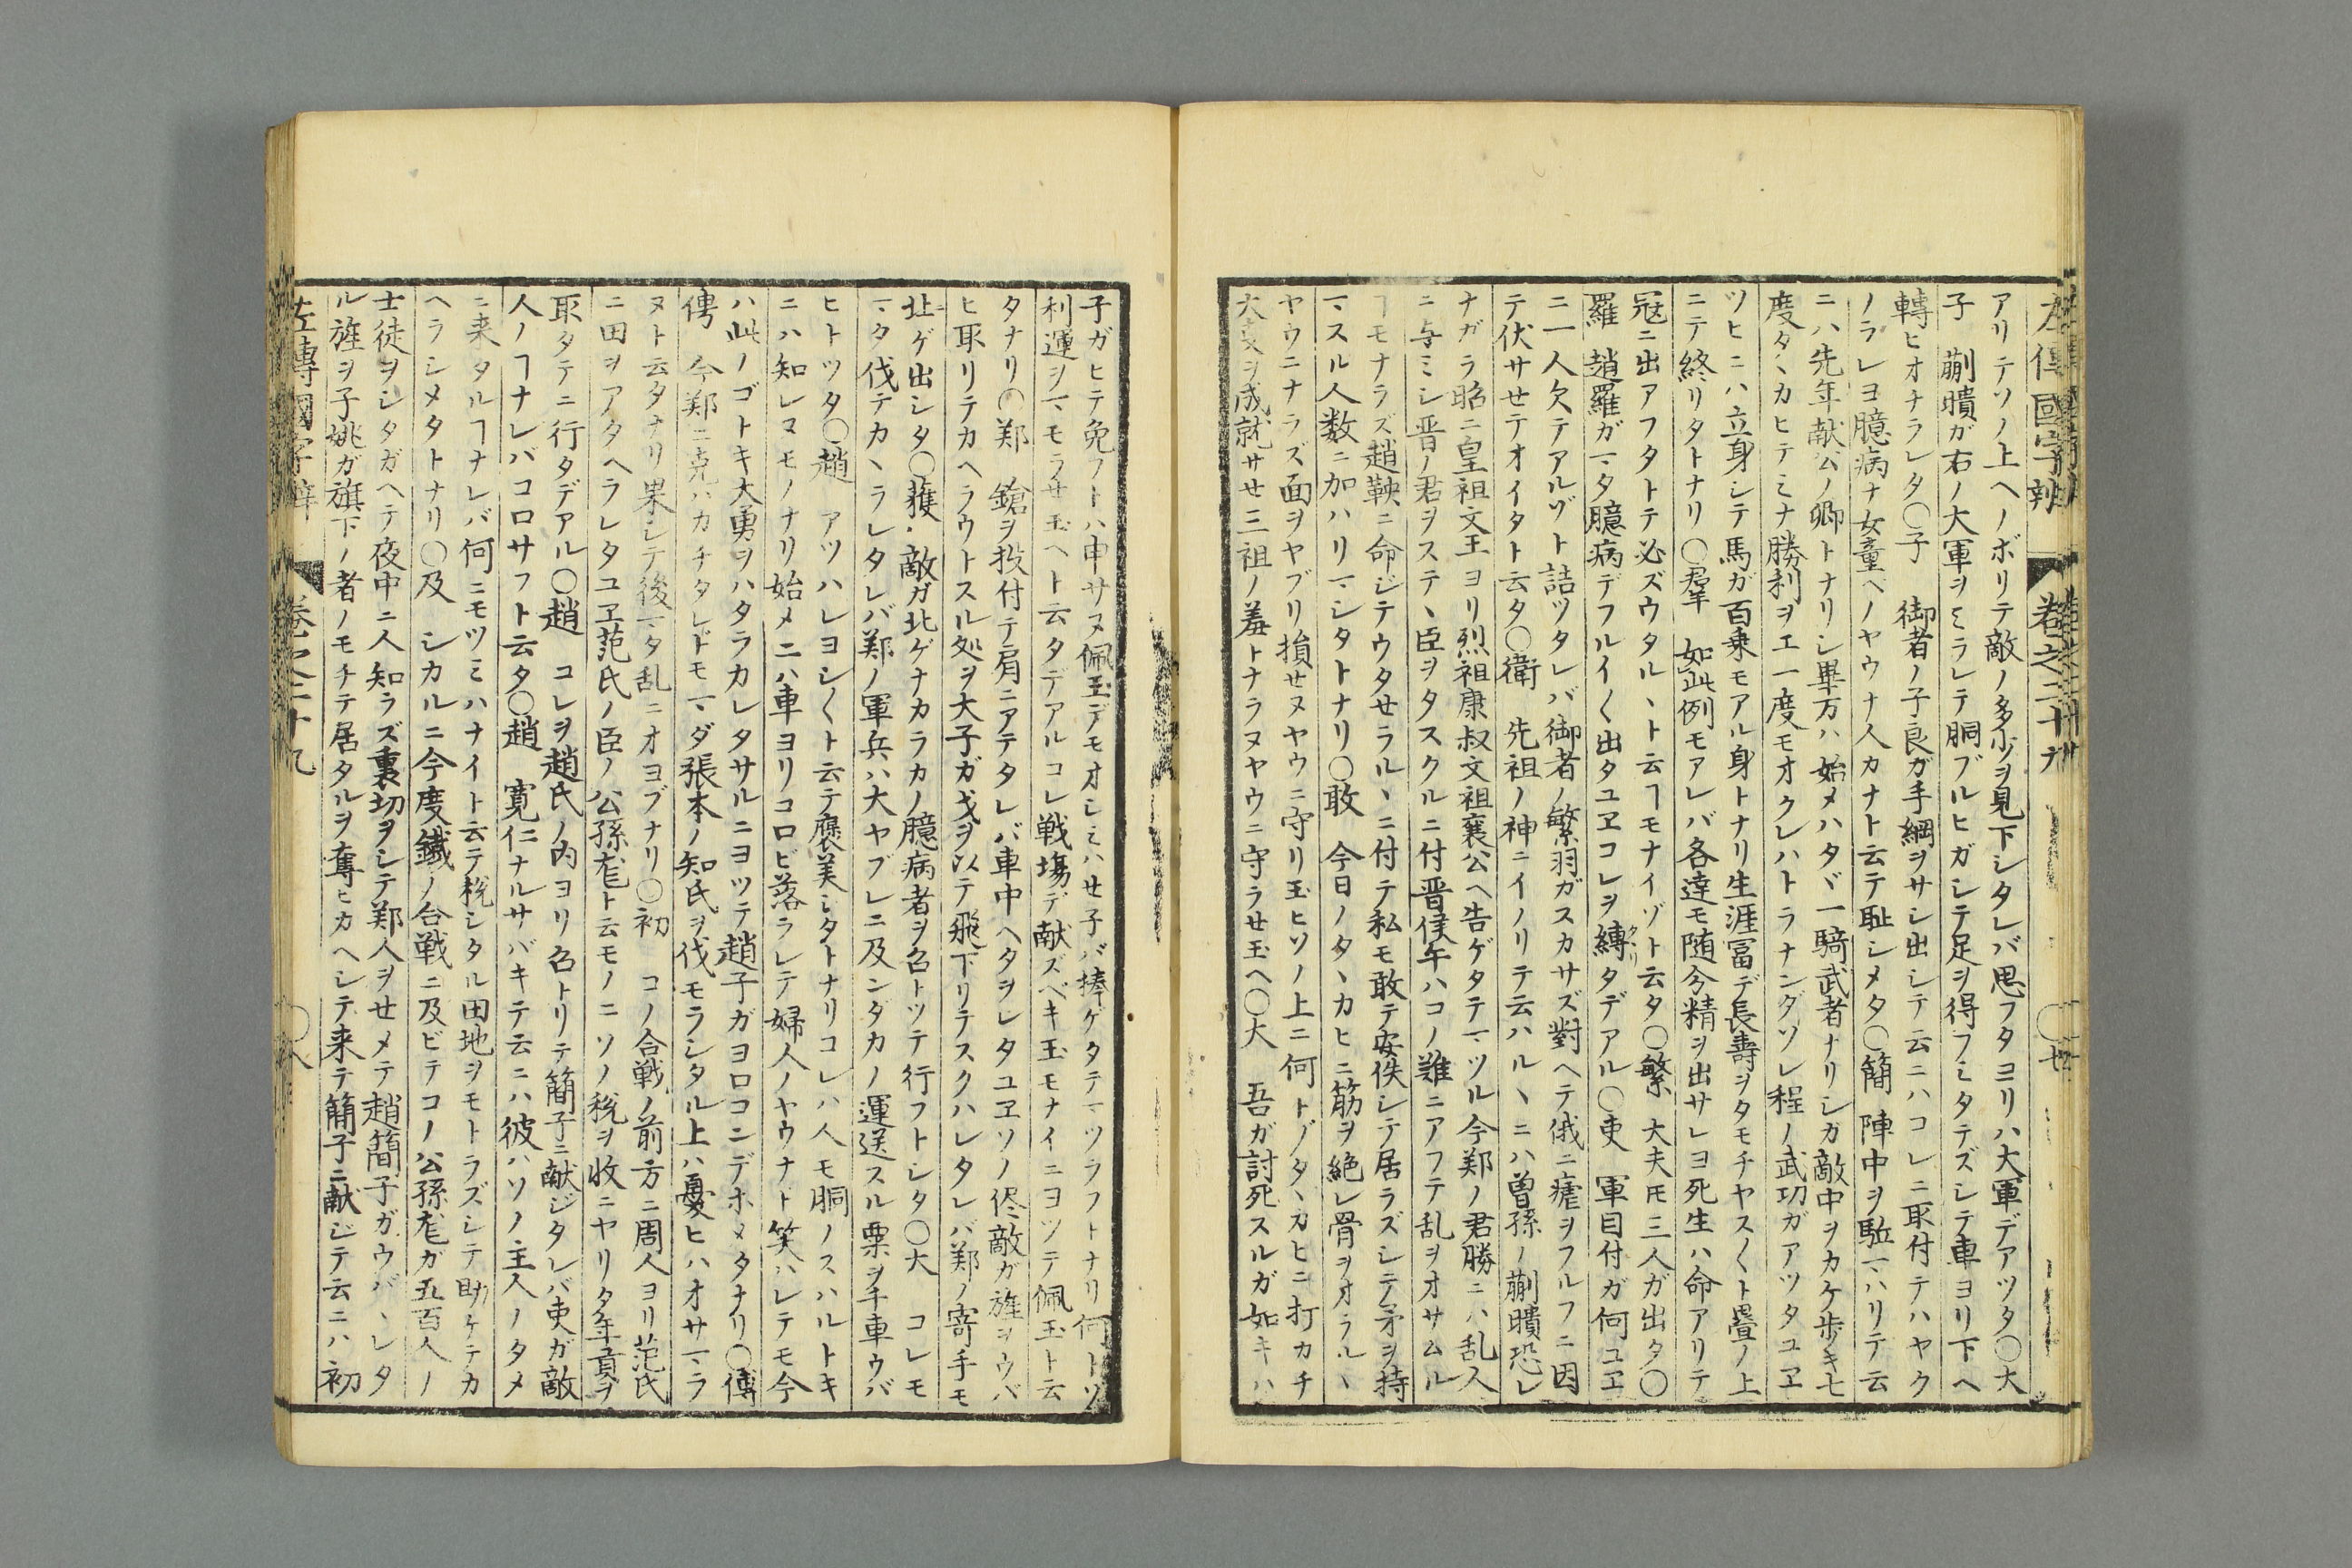 左傳國字辯 巻之二十九
アリテソノ上ヘノボリテ敵ノ多少ヲ見下シタレバ思フタヨリハ大軍デアツタ〇大
子 蒯聵ガ右ノ大軍ヲミラレテ胴ブルヒガシテ足ヲ得フミタテズシテ車ヨリ下ヘ
轉ヒオナラレタ〇子 御者ノ子良ガ手綱ヲサシ出シテ云ニハコレニ取付テハヤク
ノラレヨ臆病ナ女童ベノヤウナ人カナト云テ耻シメタ〇簡 陣中ヲ駈マハリテ云
ニハ先年献公ノ卿トナリシ畢万ハ始メハタヾ一騎武者ナリシガ敵中ヲカケ歩キ七
度タヽカヒテミナ勝利ヲエ一度モオクレハトラナンダソレ程ノ武功ガアツタユヱ
ツヒニハ立身シテ馬ガ百乗モアル身トナリ生涯冨デ長壽ヲタモチヤス〱ト疊ノ上
ニテ終リタトナリ〇羣 如此例モアレバ各達モ随分精ヲ出サレヨ死生ハ命アリテ
冦ニ出アフタトテ必ズウタルヽト云ヿモナイゾト云タ〇繁 大夫𪜈三人ガ出タ〇
羅 趙羅ガマタ臆病デフルイ〱出タユヱコレヲ縛タデアル〇吏 軍目付ガ何ユヱ
ニ一人欠テアルゾト詰ツタレバ御者ノ繁羽ガスカサズ對ヘテ俄ニ瘧ヲフルフニ因
テ伏サセテオイタト云タ〇衛 先祖ノ神ニイノリテ云ハルヽニハ曽孫ノ蒯聵恐レ
ナガラ昭ニ皇祖文王ヨリ烈祖康叔文祖襄公ヘ告ゲタテマツル今鄭ノ君勝ニハ乱人
ニ与ミシ晋ノ君ヲステヽ臣ヲタスクルニ付晋侯午ハコノ難ニアフテ乱ヲオサムル
ヿモナラズ趙鞅ニ命ジテウタセラルヽニ付テ私モ敢テ安佚シテ居ラズシテ矛ヲ持
マスル人数ニ加ハリマシタトナリ〇敢 今日ノタヽカヒニ筋ヲ絶レ骨ヲオラルヽ
ヤウニナラズ面ヲヤブリ損セヌヤウニ守リ玉ヒソノ上ニ何トゾタヽカヒニ打カチ
大支ヲ成就サセ三祖ノ羞トナラヌヤウニ守ラセ玉ヘ〇大 吾ガ討死スルガ如キハ
子ガヒテ免フトハ申サヌ佩玉デモオシミハセ子バ捧ゲタテマツラフトナリ何トソ
利運ヲマモラサ玉ヘト云タデアルコレ戦塲デ献ズベキ玉モナイニヨツテ佩玉ト云
タナリ〇鄭 鎗ヲ投付テ肩ニアテタレバ車中ヘタヲレタユヱソノ侭敵ガ旌ヲウバ
ヒ取リテカヘラウトスル処ヲ大子ガ戈ヲ以テ飛下リテスクハレタレバ鄭ノ寄手モ
北ゲ出シタ〇獲 敵ガ北ゲナカラカノ臆病者ヲ召トツテ行フトシタ〇大 コレモ
マタ伐テカヽラレタレバ鄭ノ軍兵ハ大ヤブレニ及ンダカノ運送スル粟ヲ千車ウバ
ヒトツタ〇趙 アツハレヨシ〱ト云テ褒美シタトナリコレハ人モ胴ノスハルトキ
ニハ知レヌモノナリ始メニハ車ヨリコロビ落ラレテ婦人ノヤウナト笑ハレテモ今
ハ此ノゴトキ大勇ヲハタラカレタサルニヨツテ趙子ガヨロコンデホメタナリ〇傅
傅 今鄭ニ克ハカチタレドモマダ張本ノ知氏ヲ伐モラシタル上ハ憂ヒハオサマラ
ヌト云タナリ果シテ後マタ乱ニオヨブナリ〇初 コノ合戦ノ前方ニ周人ヨリ范氏
ニ田ヲアタヘラレタユヱ范氏ノ臣ノ公孫尨ト云モノニソノ税ヲ收ニヤリタ年貢ヲ
取タテニ行タデアル〇趙 コレヲ趙氏ノ内ヨリ召トリテ簡子ニ献ジタレバ吏ガ敵
人ノヿナレバコロサフト云タ〇趙 寛仁ナルサバキテ云ニハ彼ハソノ主人ノタメ
ニ来タルヿナレバ何ニモツミハナイト云テ税シタル田地ヲモトラズシテ助ケテカ
ヘラシメタトナリ〇及 シカルニ今度鐵ノ合戦ニ及ビテコノ公孫尨ガ五百人ノ
士徒ヲシタガヘテ夜中ニ人知ラズ裏切ヲシテ鄭人ヲセメテ趙簡子ガウバヽレタ
ル旌ヲ子姚ガ旗下ノ者ノモチテ居タルヲ奪ヒカヘシテ来テ簡子ニ献ジテ云ニハ初
左傳國字辯 巻之二十九 〇八